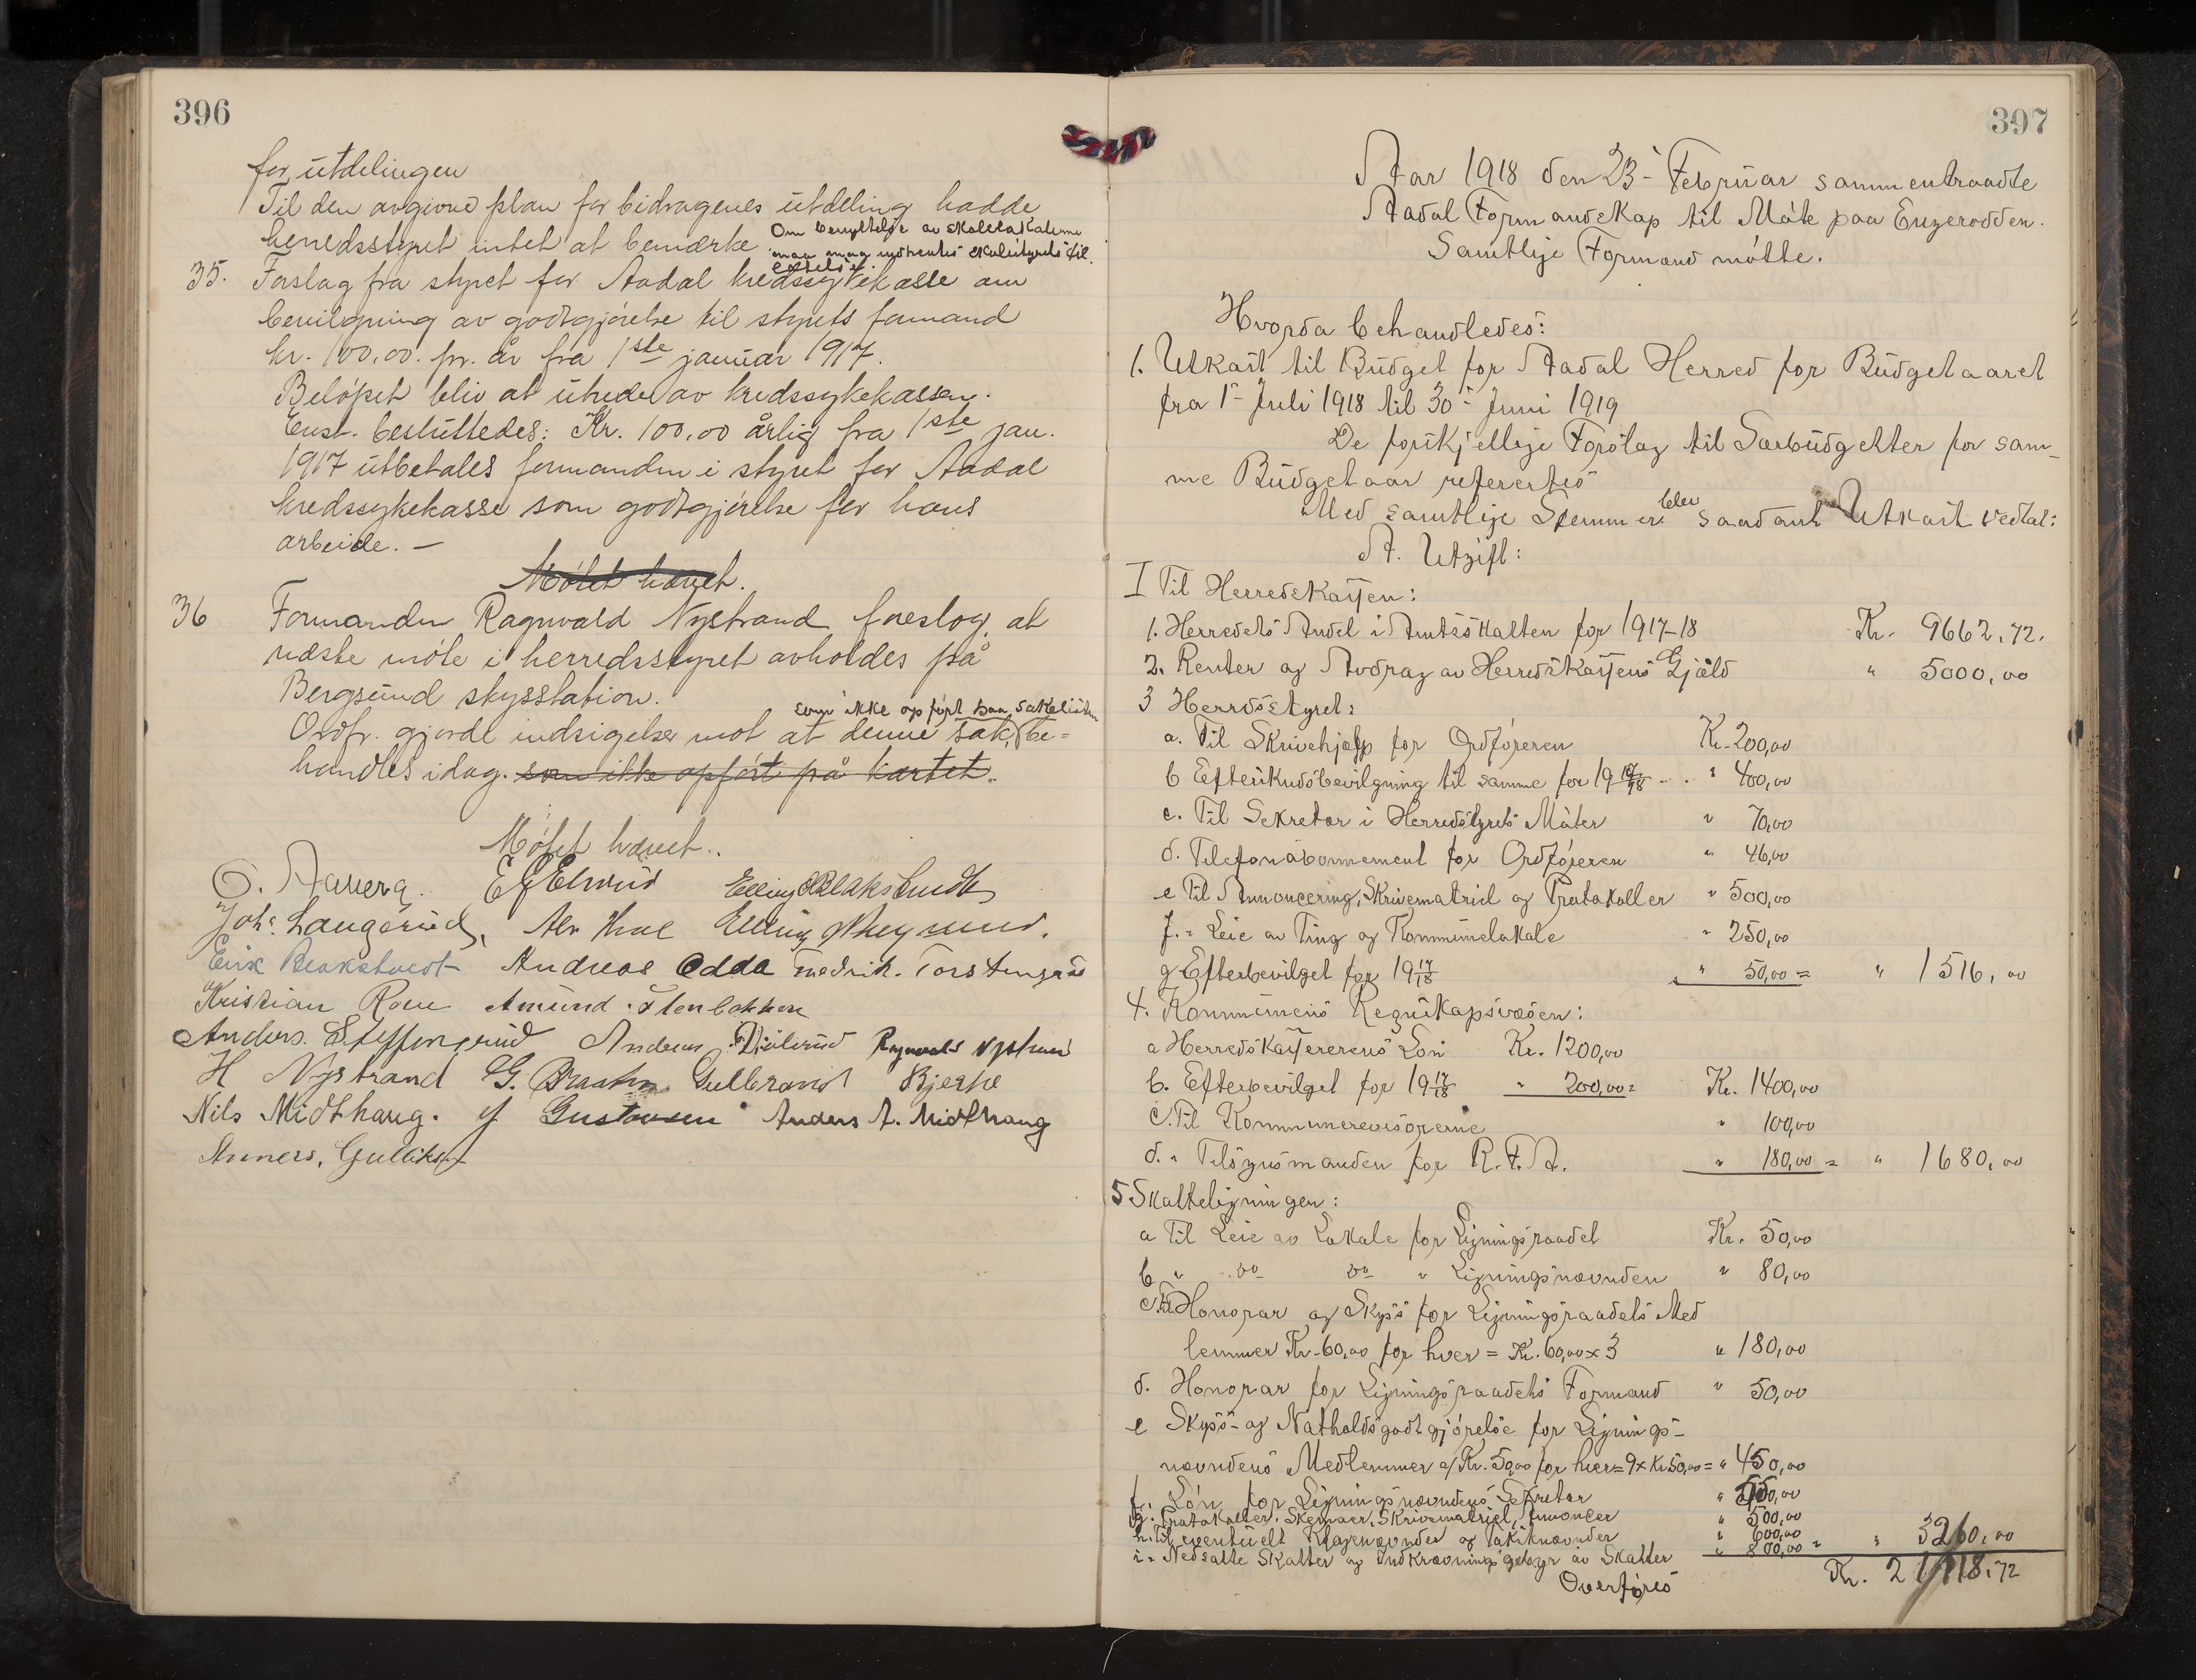 396
for utdelingen
Til den avgivne plan for bidragenes utdeling hadde
herredsstyret intet at bemærke. Om benyttelse av skolelokalerne
maa indhentes skolestyrets til
latelse.
35. Forslag fra styret for Aadal kredssykekasse om
bevilgning av godtgjørelse til styrets formand
kr. 100,00 pr. år fra 1ste januar 1917.
Beløpet bliv at utrede av kredssykekassen.
Enst. besluttedes: Kr. 100,00 årlig fra 1ste jan.
1917 utbetales formanden i styret for Aadal
kredssykekasse som godtgjørelse for hans
arbeide. —
Møtet hævet.
36 Formanden Ragnvald Nystrand foreslog at
næste møte i herredsstyret avholdes på
Bergsund skysstation.
som ikke opført paa sakslisten
Ordf. gjorde indsigelse mot at denne sak, be=
handles idag. som ikke opført på kartet.
Møtet hævet..
O. Aaberg. E G Elsrud Elling Blakstvedt
Johs. Langerud, Elling
Erik Blakstvedt Andreas Odda Fredrik. Torstensrud
Kristian Roen Amund Stenbakken
Anders. Steffensrud Andreas Ragnvald Nystrand
H Nystrand G. Braaten Gulbrand Bjerke
Nils Midthaug. Gustavsen Anders A. Midthaug
Anners. Gulliksen
397
Aar 1918 den 23- Februar sammentraadte
Aadal Formandskap til Møte paa Enger­odden.
Samtlige Formænd møtte.
Hvorda behandledes:
1. Utkast til Budget for Aadal Herred for Budgetaaret
fra 1- Juli 1918 til 30- Juni 1919
De forskjellige Forslag til Særbudgetter for sam-
me Budgetaar refertes
Med samtlige Stemmer blev saadant Utkast vedtat:
A. Utgift:
I Til Herredskassen:
1. Herredets Andel i Amtsskatten for 1917-18 Kr. 9662.72.
2. Renter og Avdrag av Herredskassens Gjæld " 5000,00
3 Herredsstyret:
a. Til Skrivehjelp for Ordføreren Kr. 200,00
b Efterskudsbevilgning til samme for 1917/18 .. . " 400,00
c. Til Sekretær i Herredsstyrets Møter " 70,00
d. Telefonabonnement for Ordføreren " 46,00
e Til Annoncering, Skrivematriel og Protokoller " 500,00
f. " Leie av Ting og Kommunelokale " 250,00
g Efterbevilget for 1917/18 " 50,00 = " 1516,00
4. Kommunens Regnskapsvæsen:
a Herredskassererens Løn Kr. 1200,00
b. Efterbevilget for 1917/18 " 200,00 = Kr. 1400,00
c. Til Kommunerevisorerne " 100,00
d. " Tilsynsmanden for R.F.A. " 180,00 = " 1680,00
5 Skatteligningen:
a Til Leie av Lokale for Ligningsraadet Kr. 50,00
b " do do " Ligningsnævnden " 80,00
c Til Honorar og Skyss for Ligningsraadets Med
lemmer Kr. 60,00 for hver = Kr. 60,00 x 3 " 180,00
d. Honorar for Ligningsraadets Formand " 50,00
e Skyss- og Natholdsgodtgjørelse for Lignings-
nævndens Medlemmer a/ Kr. 50,00 for hver = 9 x Kr 50,00 = " 450,00
f. Løn for Ligningsnævndens Sekretær
g. Protokoller, Skemaer, Skrivematriel, Annoncer " 500,00
h. Til eventuelt Klagenævnder og Takstnævnder " 600,00
i " Nedsatte Skatter og Indkrævningsgebyr av Skatter " 800,00 = " 3260,00
Overføres Kr. 21118.72